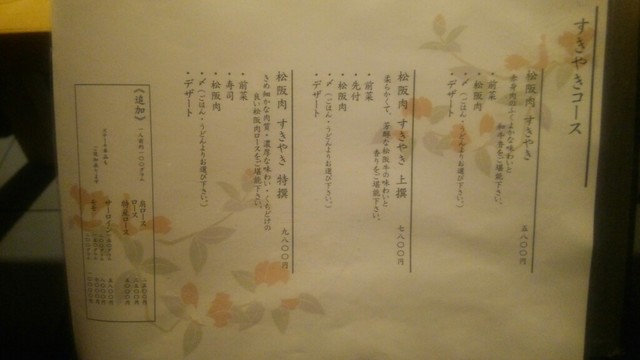 すきやきコース
松阪肉 すきやき 五八〇〇円
赤身肉のふくよかな味わいと
和牛香をご堪能下さい。
・前菜
・松阪肉
・〆(ごはん・うどんよりお選び下さい。)
・デザート
松阪肉 すきやき 上撰 七八〇〇円
柔らかくて、芳醇な松阪牛の味わいと
香りをご堪能下さい。
・前菜
・先付
・松阪肉
・〆(ごはん・うどんよりお選び下さい。)
・デザート
松阪肉 すきやき 特撰 九八〇〇円
きめ細かな肉質・濃厚な味わい・くちどけの
良い松阪肉ロースをご堪能下さい。
・前菜
・寿司
・松阪肉
・〆(ごはん・うどんよりお選び下さい。)
・デザート
《追加》
肩ロース
ロース
特撰ロース
サーロイン